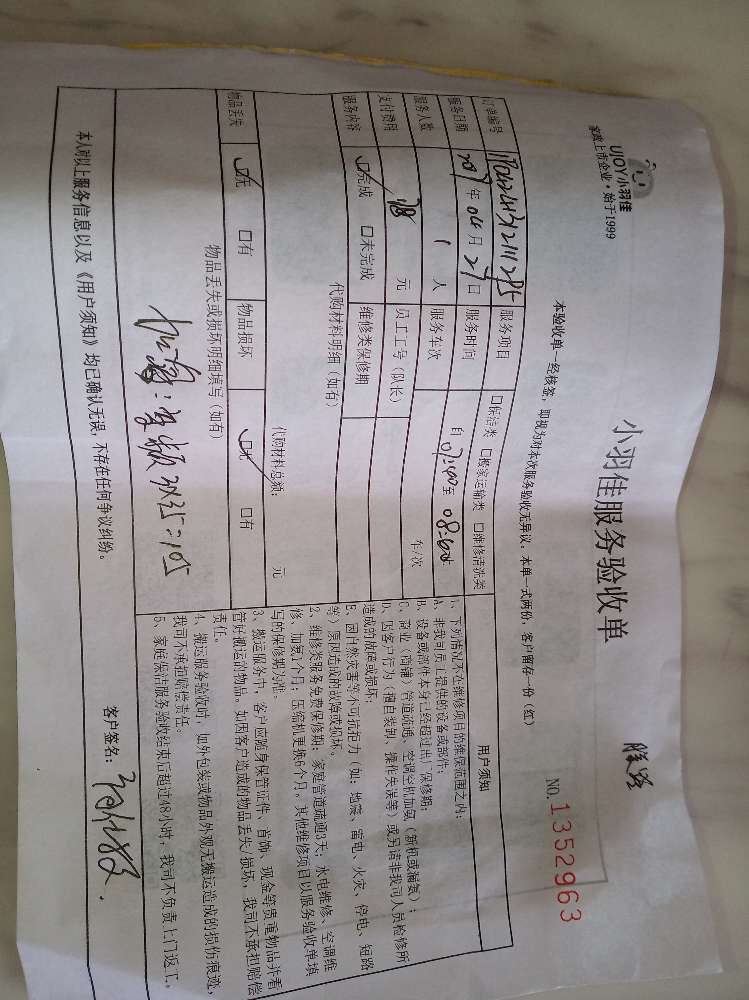 UJOY小羽佳
家政上市企业·始于1999
小羽佳服务验收单
NO.1352963
本验收单一经核签，即视为对本次服务验收无异议。本单一式两份，客户留存一份（红）
订单编号 服务项目 口保洁类 口搬家运输类 口维修清洗类
服务日期 年 04 月 日 服务时间 自 至
服务人数 1 人 服务车次 车/次
支付费用 元 员工工号（队长）
服务内容 口完成 口未完成 维修类保修期
代购材料明细（如有）
代购材料总额： 元
物品丢失 口无 口有 物品损坏 口无 口有
物品丢失或损坏明细填写（如有）
用户须知
1、下列情况不在维修项目的维保范围之内：
A、非我司员工提供的设备或部件；
B、设备或部件本身已经超过出厂保修期；
C、商业（商铺）管道疏通、空调空机加氨（新机或漏氨）；
D、因客户行为（擅自装卸、操作失误等）或另请非我司人员检修所
造成的故障或损坏；
E、因自然灾害等不可抗拒力（如：地震、雷电、火灾、停电、短路
等）原因造成的故障或损坏。
2、维修类服务免费保修期：家庭管道疏通3天；水电维修、空调维
修、加氨1个月；压缩机更换6个月。其他维修项目以服务验收单填
写的保修期为准。
3、搬运服务中，客户应随身保管证件、首饰、现金等贵重物品并看
管好搬运的物品。如因客户造成的物品丢失/损坏，我司不承担赔偿
责任。
4、搬运服务验收时，如外包装或物品外观无搬运造成的损伤痕迹，
我司不承担赔偿责任。
5、家庭保洁服务验收结束后超过48小时，我司不负责上门返工。
本人对以上服务信息以及《用户须知》均已确认无误，不存在任何争议纠纷。
客户签名：